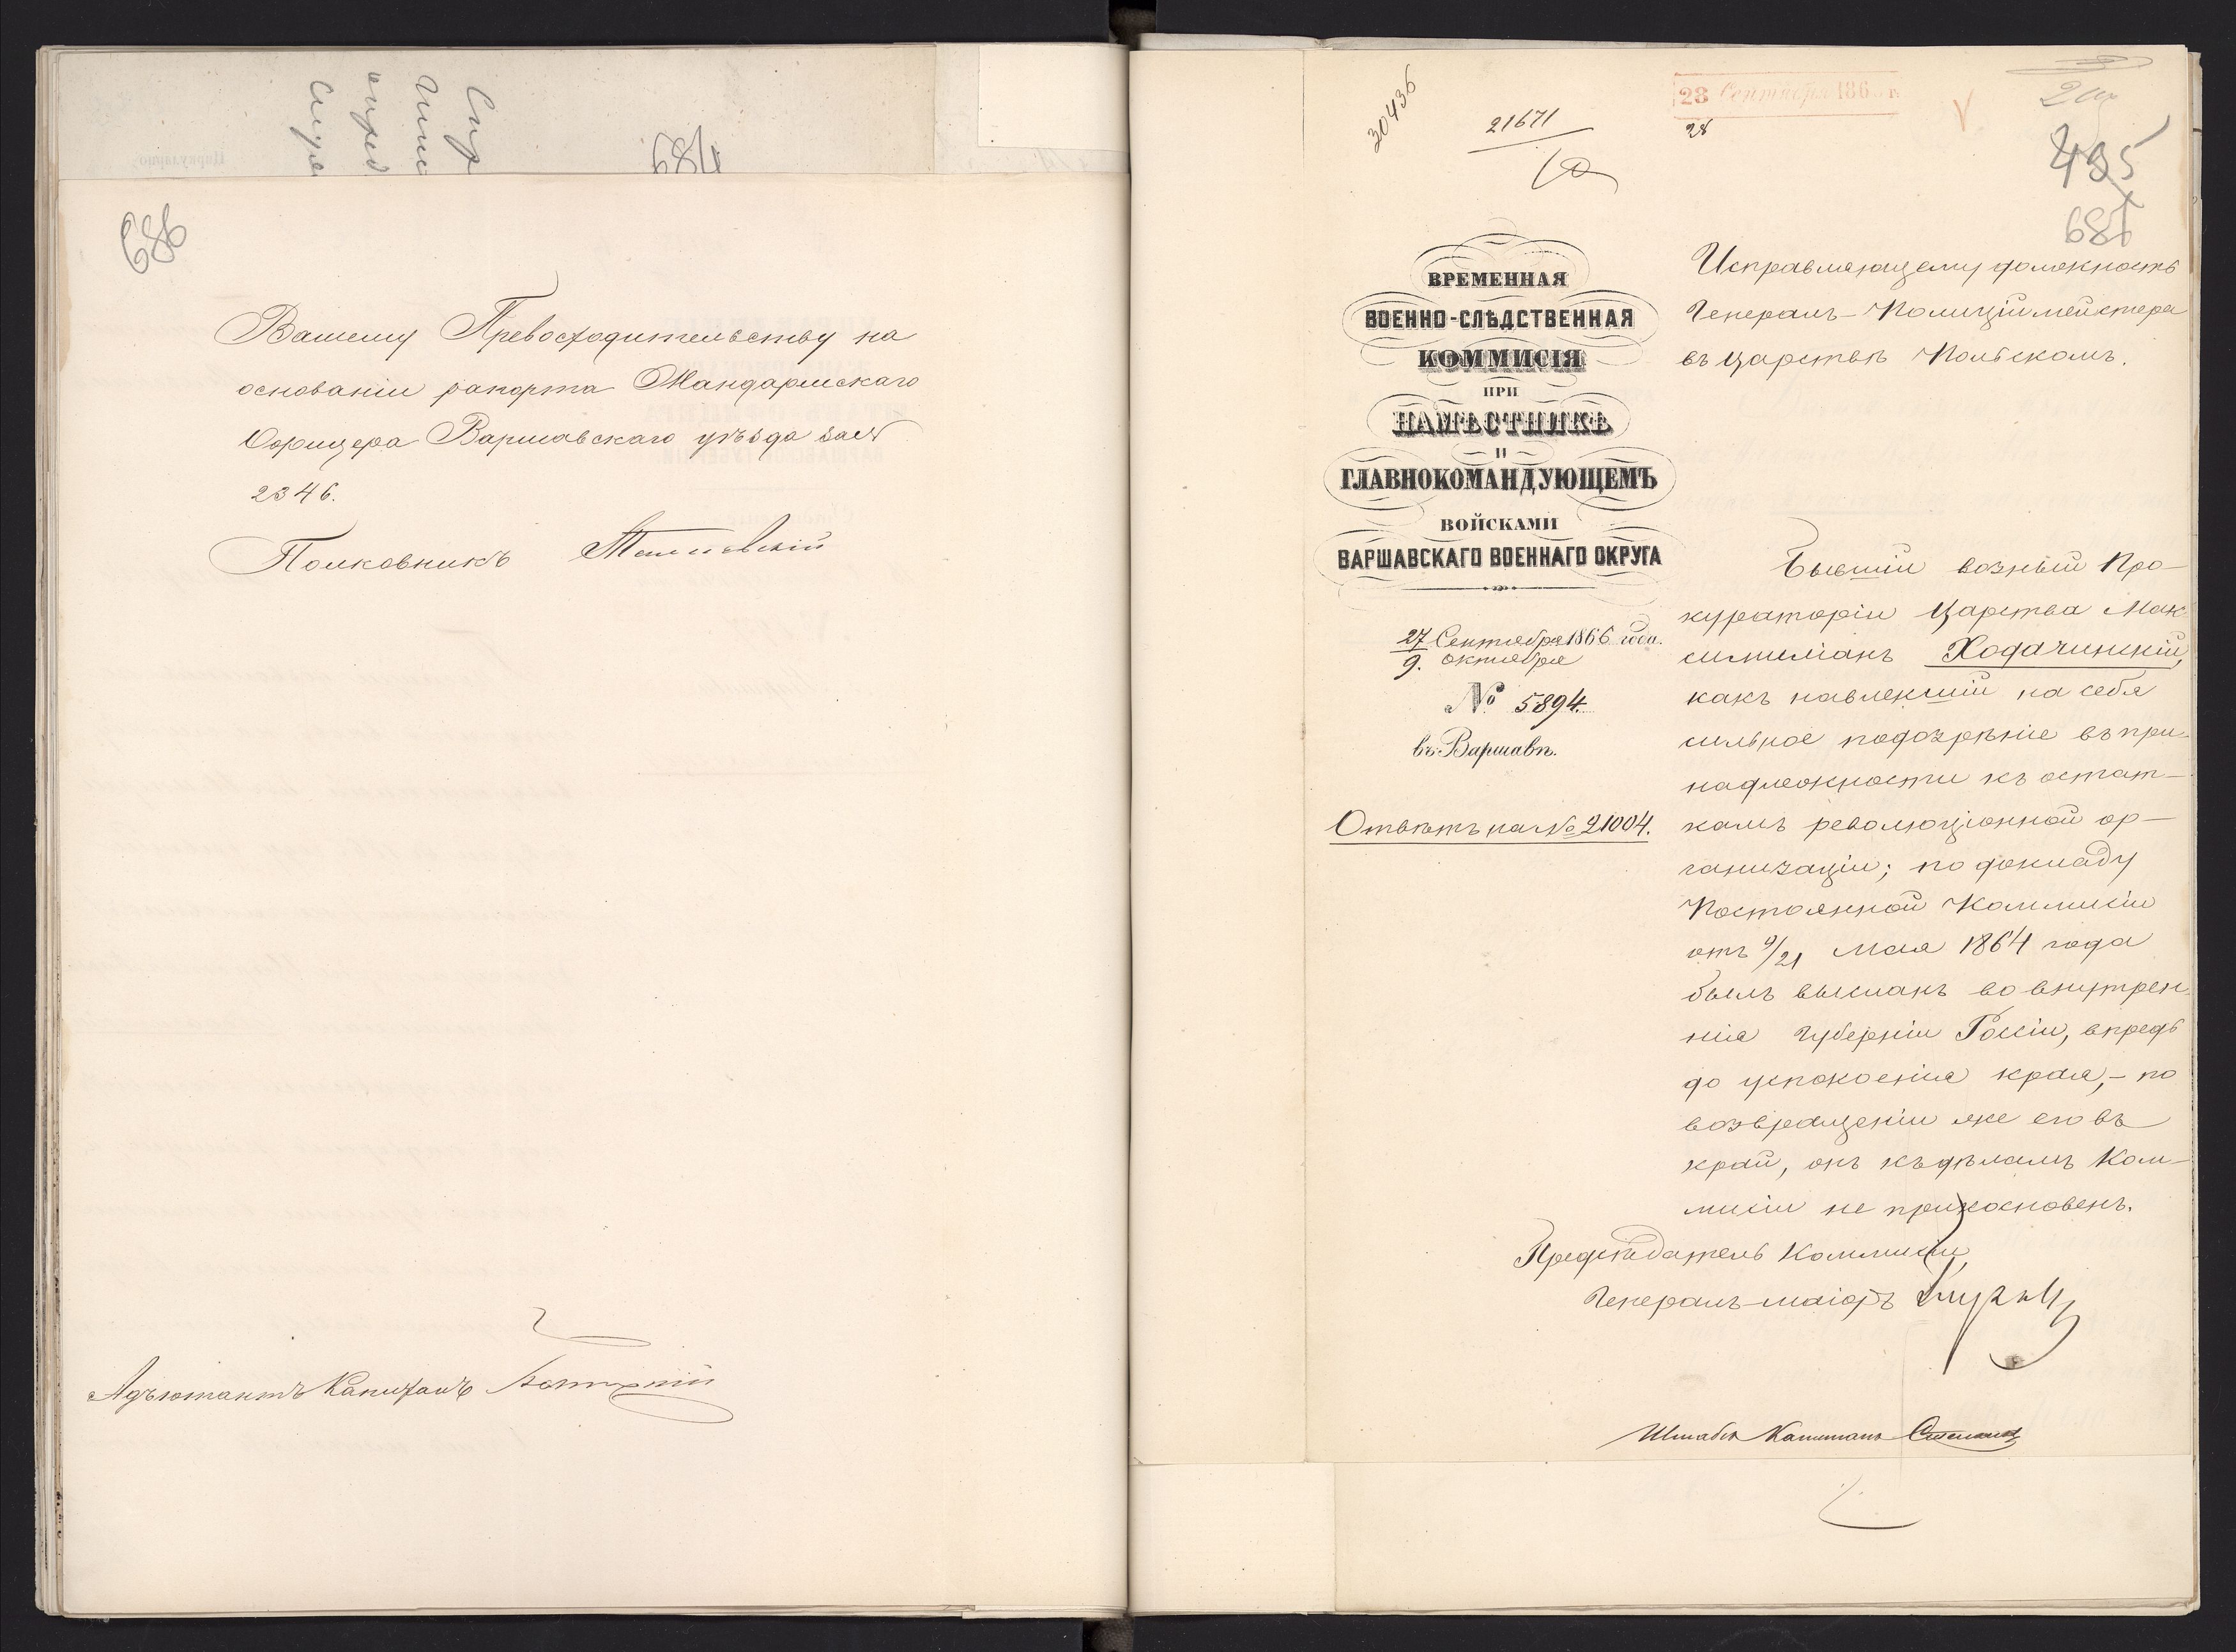 684
686
Вашему Превосходительству на
основаніи рапорта Жандармскаго
Офицера Варшавскаго уѣзда за №
2346.
Полковникъ
Адъютантъ Капитанъ
30436
21671
28 Сентября 186
28
495
686
ВРЕМЕННАЯ
ВОЕННО-СЛѢДСТВЕННАЯ
КОММИСІЯ
ПРИ
НАМѢСТНИКѢ
И
ГЛАВНОКОМАНДУЮЩЕМЪ
ВОЙСКАМИ
ВАРШАВСКАГО ВОЕННАГО ОКРУГА
27 Сентября 1866 года.
9. Октября
№ 5894.
въ Варшавѣ.
Отвѣтъ на № 21004.
Исправляющему должность
Генералъ-Полиціймейстера
въ Царствѣ Польскомъ.
Бывшій возный Про-
кураторіи Царства Мак-
симиліанъ Ходачинскій,
какъ навлекшій на себя
сильное подозрѣніе въ при-
надлежности къ остат-
камъ революціонной ор-
ганизаціи; по докладу
Постоянной Коммисіи
отъ 9/21 Мая 1864 года
былъ высланъ во внутрен-
нія Губерніи Россіи, впредь
до успокоенія края, - по
возвращеніи же его въ
край, онъ къ дѣламъ Ком-
мисіи не прикосновенъ.
Предсѣдатель Коммисіи,
Генералъ-маіоръ
Штабсъ Капитанъ